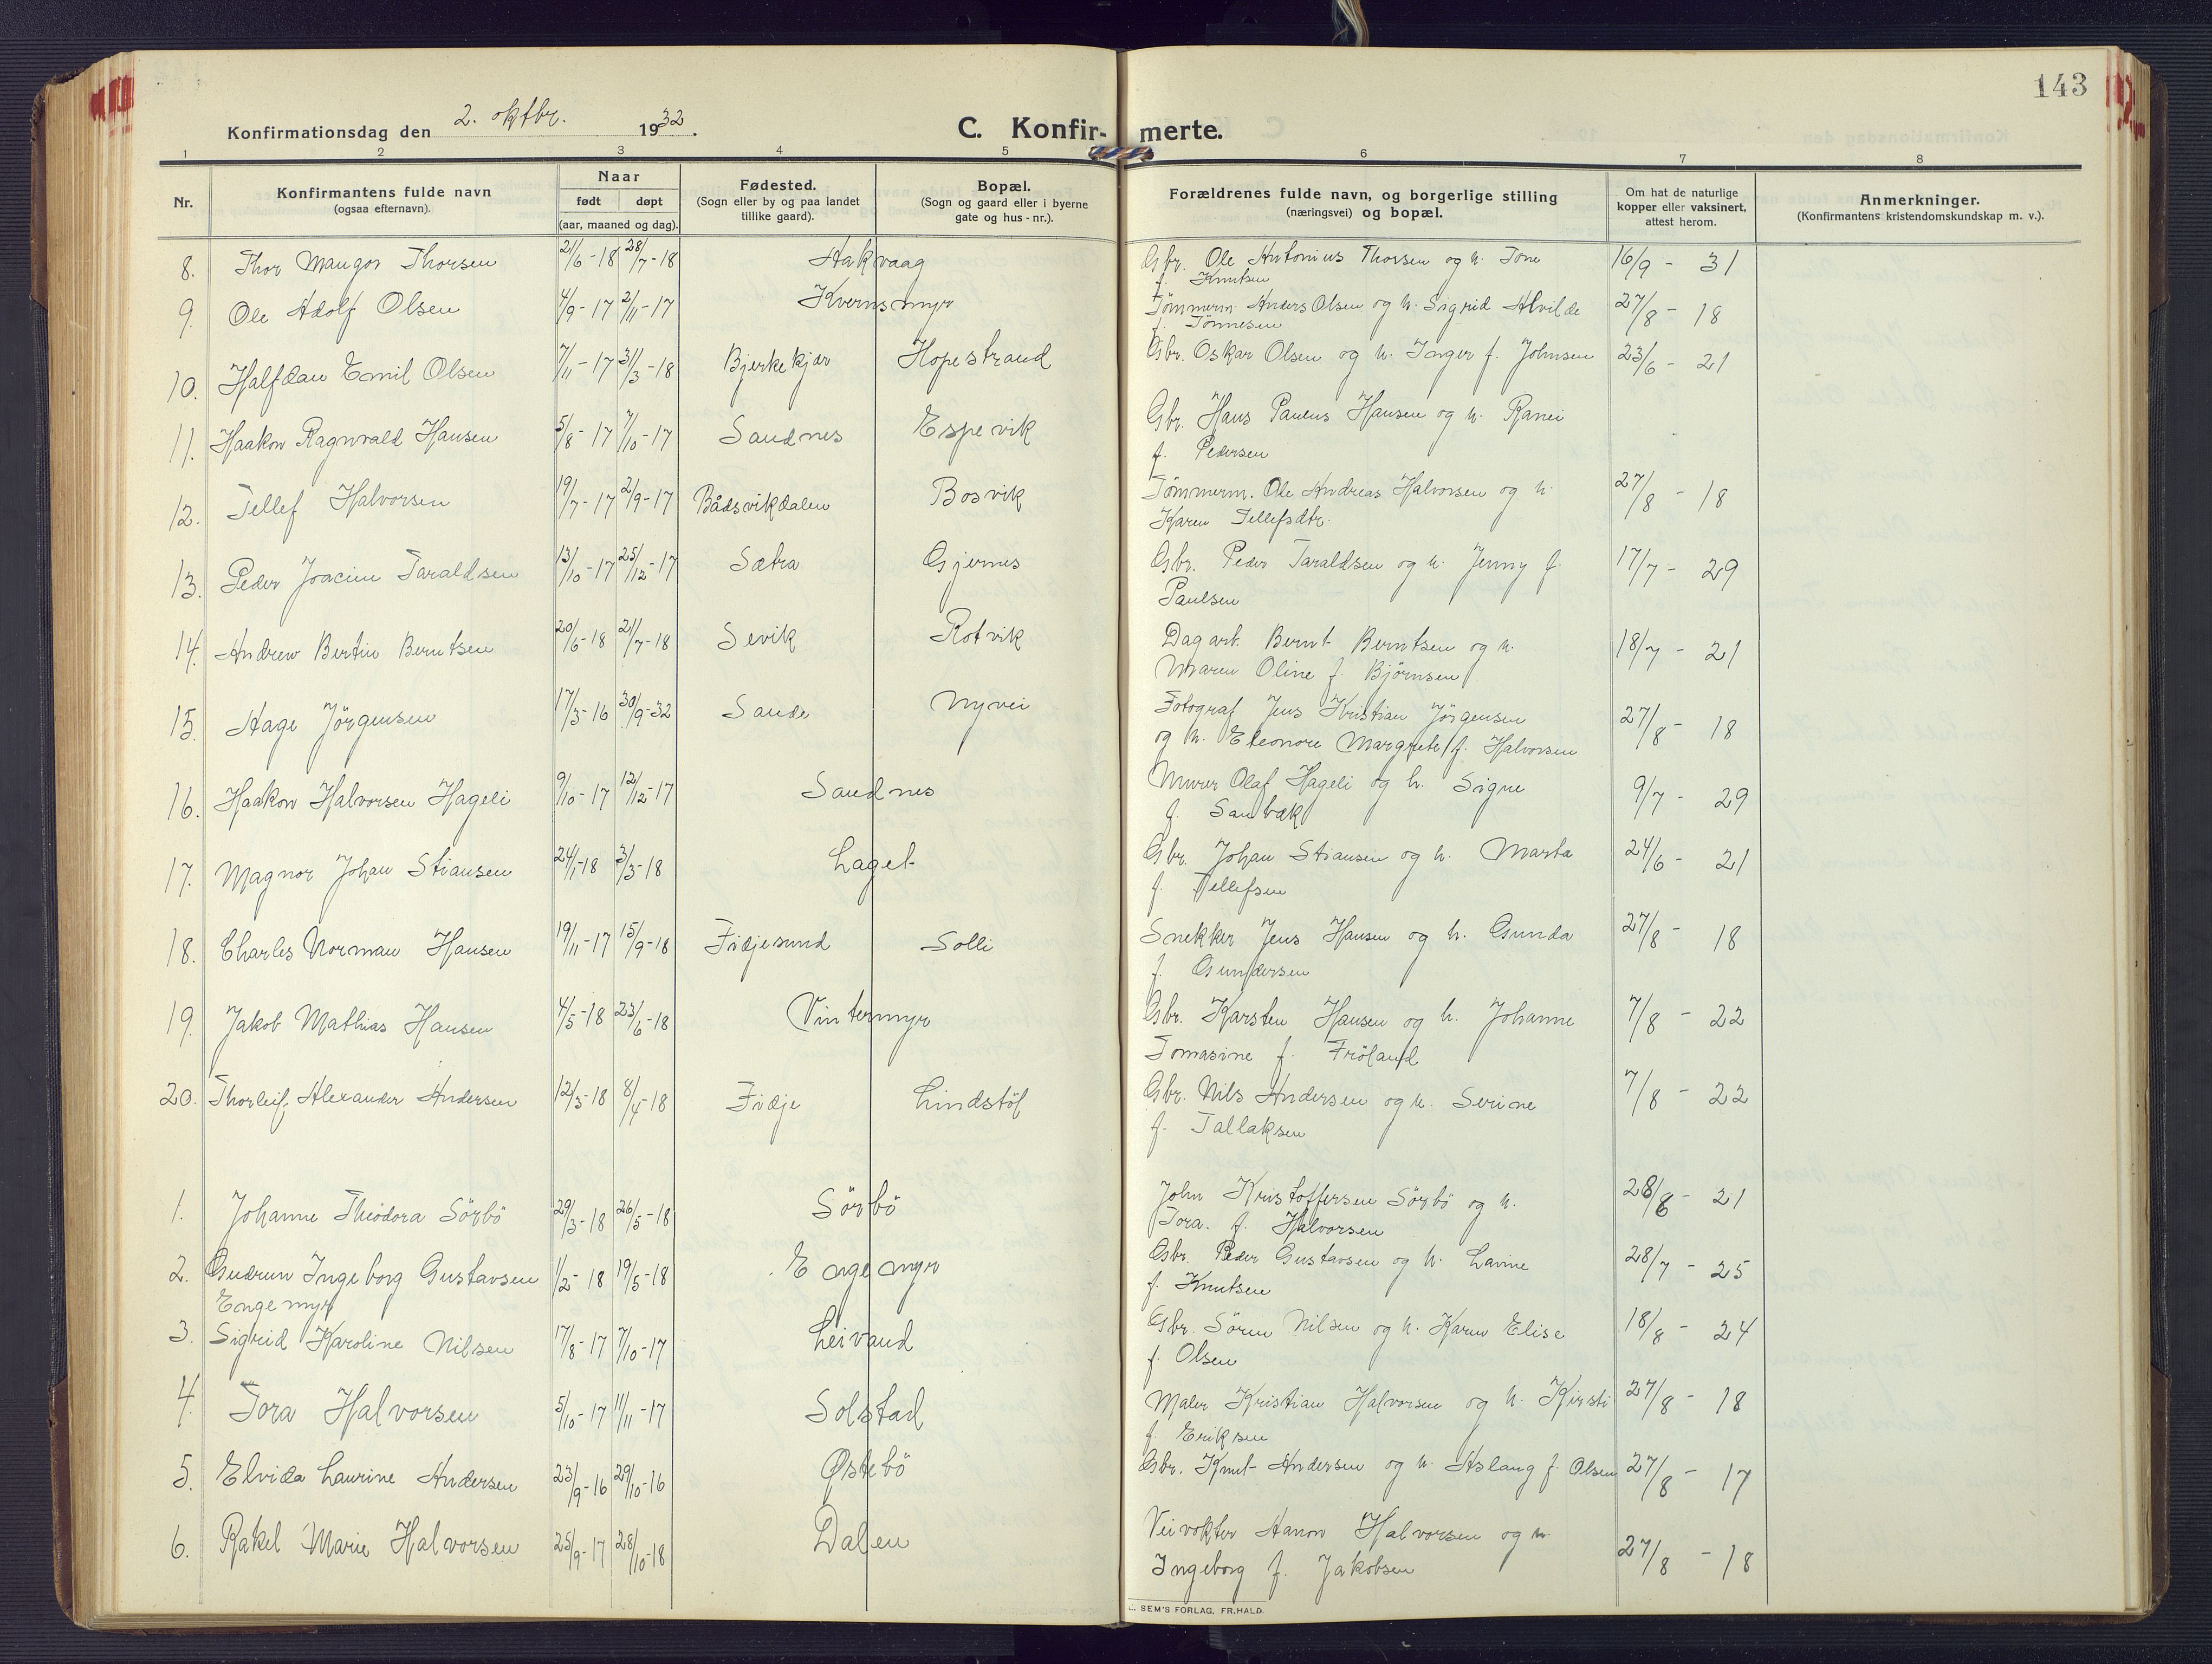 143
Konfirmationsdag den 2. oktbr. 1932.
C. Konfir- merte.
1 2 3 4 5 6 7 8
Nr.
Konfirmantens fulde navn
(ogsaa efternavn).
Naar
født døpt
(aar, maaned og dag).
Fødested.
(Sogn eller by og paa landet
tillike gaard).
Bopæl.
(Sogn og gaard eller i byerne
gate og hus - nr.).
Forældrenes fulde navn, og borgerlige stilling
(næringsvei) og bopæl.
Om hat de naturlige
kopper eller vaksinert,
attest herom.
Anmerkninger.
(Konfirmantens kristendomskundskap m. v.).
8. Thor Thorsen 21/6-18 28/7-18 Hakvaag Gbr. Ole Antonius Thorsen og h. Tone 16/9 - 31
f. Knutsen
9. Ole Adolf Olsen 4/9-17 2/11-17 Kvernsmyr Tömmerm. Anders Olsen og h. Sigrid Alvilde 27/8 - 18
f. Tönnesen
10. Halfdan Emil Olsen 7/11-17 31/3-18 Bjerkekjær Hopestrand Gbr. Oskar Olsen og h. Inger f. Johnsen 23/6 - 21
11. Haakon Ragnvald Hansen 5/8-17 7/10-17 Sandnes Espevik Gbr. Hans Paulus Hansen og h. Ranei
f. Pedersen
12. Tellef Halvorsen 19/7-17 2/9-17 Bådsvikdalen Bosvik Tömmerm. Ole Andreas Halvorsen og h. 27/8 - 18
Karen Tellefsdtr.
13. Peder Joacim Taraldsen 13/10-17 25/12-17 Sætra Gjernes Gbr. Peder Taraldsen og h. Jenny f. 17/7 - 29
Paulsen
14. Andrew Bertin Berntsen 20/6-18 21/7-18 Sevik Rotvik Dagarb. Bernt Berntsen og h. 18/7 - 21
Maren Oline f. Bjørnsen
15. Hage Jörgensen 17/3-16 30/9-32 Sande Nyvei Fotograf Jens Kristian Jörgensen 27/8 - 18
og h. Eleonore Margrete f. Halvorsen
16. Haakon Halvorsen Hageli 9/10-17 12/12-17 Sandnes Murer Olaf Hageli og h. Signe 9/7 - 29
f. Sandbæk
17. Magnor Johan Stiansen 24/1-18 3/3-18 Laget Gbr. Johan Stiansen og h. Marta 24/6 - 21
f. Tellefsen
18. Charles Norman Hansen 19/11-17 15/9-18 Fidjesund Solli Snekker Jens Hansen og h. Gunda 27/8 - 18
f. Gundersen
19. Jakob Mathias Hansen 4/5-18 23/6-18 Vintermyr Gbr. Karsten Hansen og h. Johanne 7/8 - 22
Tomasine f. Fröland
20. Thorleif Alexander Andersen 12/3-18 8/4-18 Fidje Lindstöl Gbr. Nils Andersen og h. Serine 7/8 - 22
f. Tallaksen
1. Johanne Theodora Sörbö 29/3-18 26/5-18 Sörbö John Kristoffersen Sörbö og h. 28/6 - 21
Tora. f. Halvorsen
2. Gudrun Ingeborg Gustavsen 1/2-18 19/5-18 Engemyr Gbr. Peder Gustavsen og h. Lavine 28/7 - 25
Engemyr f. Knutsen
3. Sigrid Karoline Nilsen 17/8-17 7/10-17 Leivand Gbr. Sören Nilsen og h. Karen Elise 18/8 - 24
f. Olsen
4. Tora Halvorsen 5/10-17 11/11-17 Solstad Maler Kristian Halvorsen og h. Kirsti 27/8 - 18
f. Eriksen
5. Elvida Laurine Andersen 23/9-16 29/10-16 Østebö Gbr. Knut Andersen og h. Aslaug f. Olsen 27/8 - 17
6. Rakel Marie Halvorsen 25/9-17 28/10-18 Dalen Veivokter Hanon Halvorsen og h. 27/8 - 18
Ingeborg f. Jakobsen
SEM'S FORLAG, FR.HALD.